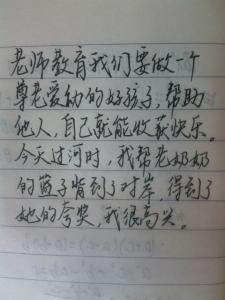 老师教育我们要做一个
尊老爱幼的好孩子，帮助
他人，自己就能收获快乐。
今天过河时，我帮老奶奶
的篮子背到了对岸，得到了
她的夸奖，我很高兴。